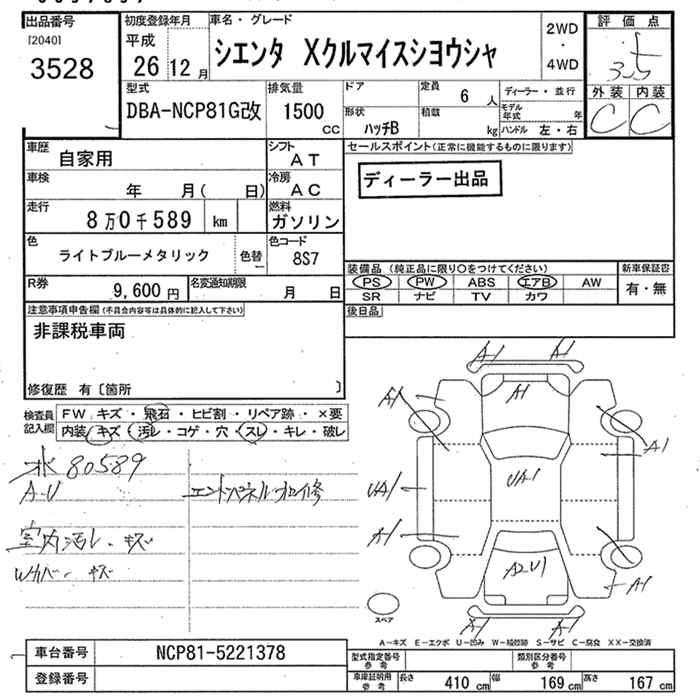 出品番号
[2040]
3528
初度登録年月
平成
26 12 月
車名・グレード
シエンタ Xクルマイスシヨウシャ
2WD
・
4WD
評価点
3.5
外装 内装
C C
型式
DBA-NCP81G改
排気量
1500
CC
ドア
形状
ハッチB
定員
6 人
積載
kg
ディーラー・並行
モデル年式 年
ハンドル 左・右
車歴
自家用
シフト
AT
セールスポイント(正常に機能するものに限ります)
ディーラー出品
車検
年 月( 日)
冷房
AC
走行
8万0千589 km
燃料
ガソリン
色
ライトブルーメタリック
色替
ー
色コード
8S7
装備品(純正品に限り○をつけてください)
PS PW ABS エアB AW
SR ナビ TV カワ
新車保証書
有・無
R券
9,600 円
名変通知期限
月 日
後日品
注意事項申告欄(不具合内容等は具体的に記入して下さい)
非課税車両
修復歴 有〔箇所 〕
検査員記入欄
FW キズ・飛石・ヒビ割・リペア跡・×要
内装 キズ・汚レ・コゲ・穴・スレ・キレ・破レ
80589
A-U
エンドパネル
室内汚レ・キズ
キズ
A-1 A-1
A1 A1
A1
UA1 UA1
A1
A2U1
A-1
A-1 A-1
スペア
A-キズ E-エクボ U-凹み W-補修跡 S-サビ C-腐食 XX-交換済
車台番号
NCP81-5221378
登録番号
型式指定番号
参考
類別区分番号
参考
車庫証明用
参考
長さ 410 cm 幅 169 cm 高さ 167 cm